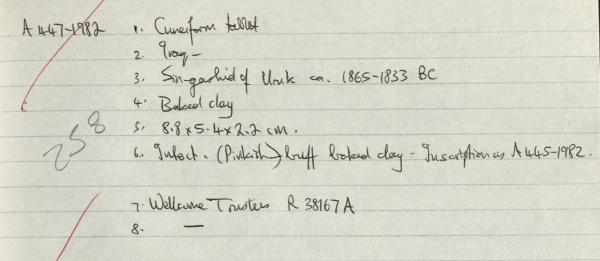 A 447-1982 1. Cuneiform tablet
2. Iraq -
3. Sin-gashid of Uruk ca. 1865-1833 BC
4. Baked clay
258
5. 8.8 x 5.4 x 2.2 cm.
6. Intact. (Pinkish) buff baked clay - Inscription as A 445-1982.
7. Wellcome Trustees R 38167A
8. —